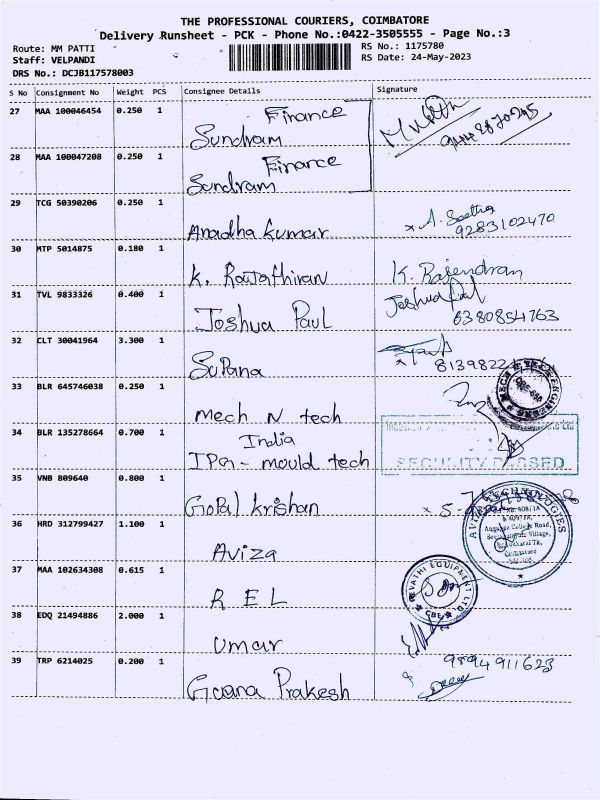 THE PROFESSIONAL COURIERS, COIMBATORE
Delivery Runsheet - PCK - Phone No.:0422-3505555 - Page No.:3
Route: MM PATTI
RS No.: 1175780
Staff: VELPANDI
RS Date: 24-May-2023
DRS No.: DCJB117578003
S No Consignment No Weight PCS Consignee Details Signature
27 MAA 100046454 0.250 1
Finance
Sundram
28 MAA 100047208 0.250 1
Finance
Sundram
29 TCG 50390206 0.250 1
Anadha Kumar
9283102470
30 MTP 5014875 0.180 1
K. Rajathivan K. Rajendran
31 TVL 9833326 0.400 1
Joshua Paul Joshua Paul
6380854763
32 CLT 30041964 3.300 1
SuPana
33 BLR 645746038 0.250 1
Mech N tech
34 BLR 135278664 0.700 1
India
IPG - mould tech
SECURITY PASSED
35 VNB 809640 0.800 1
GoPal Krishan
36 HRD 312799427 1.100 1
Aviza
37 MAA 102634308 0.615 1
R E L
REVATHI EQUIPMENT LTD.
CBE
38 EDQ 21494886 2.000 1
Umar
39 TRP 6214025 0.200 1
9894911623
Gnana Prakesh